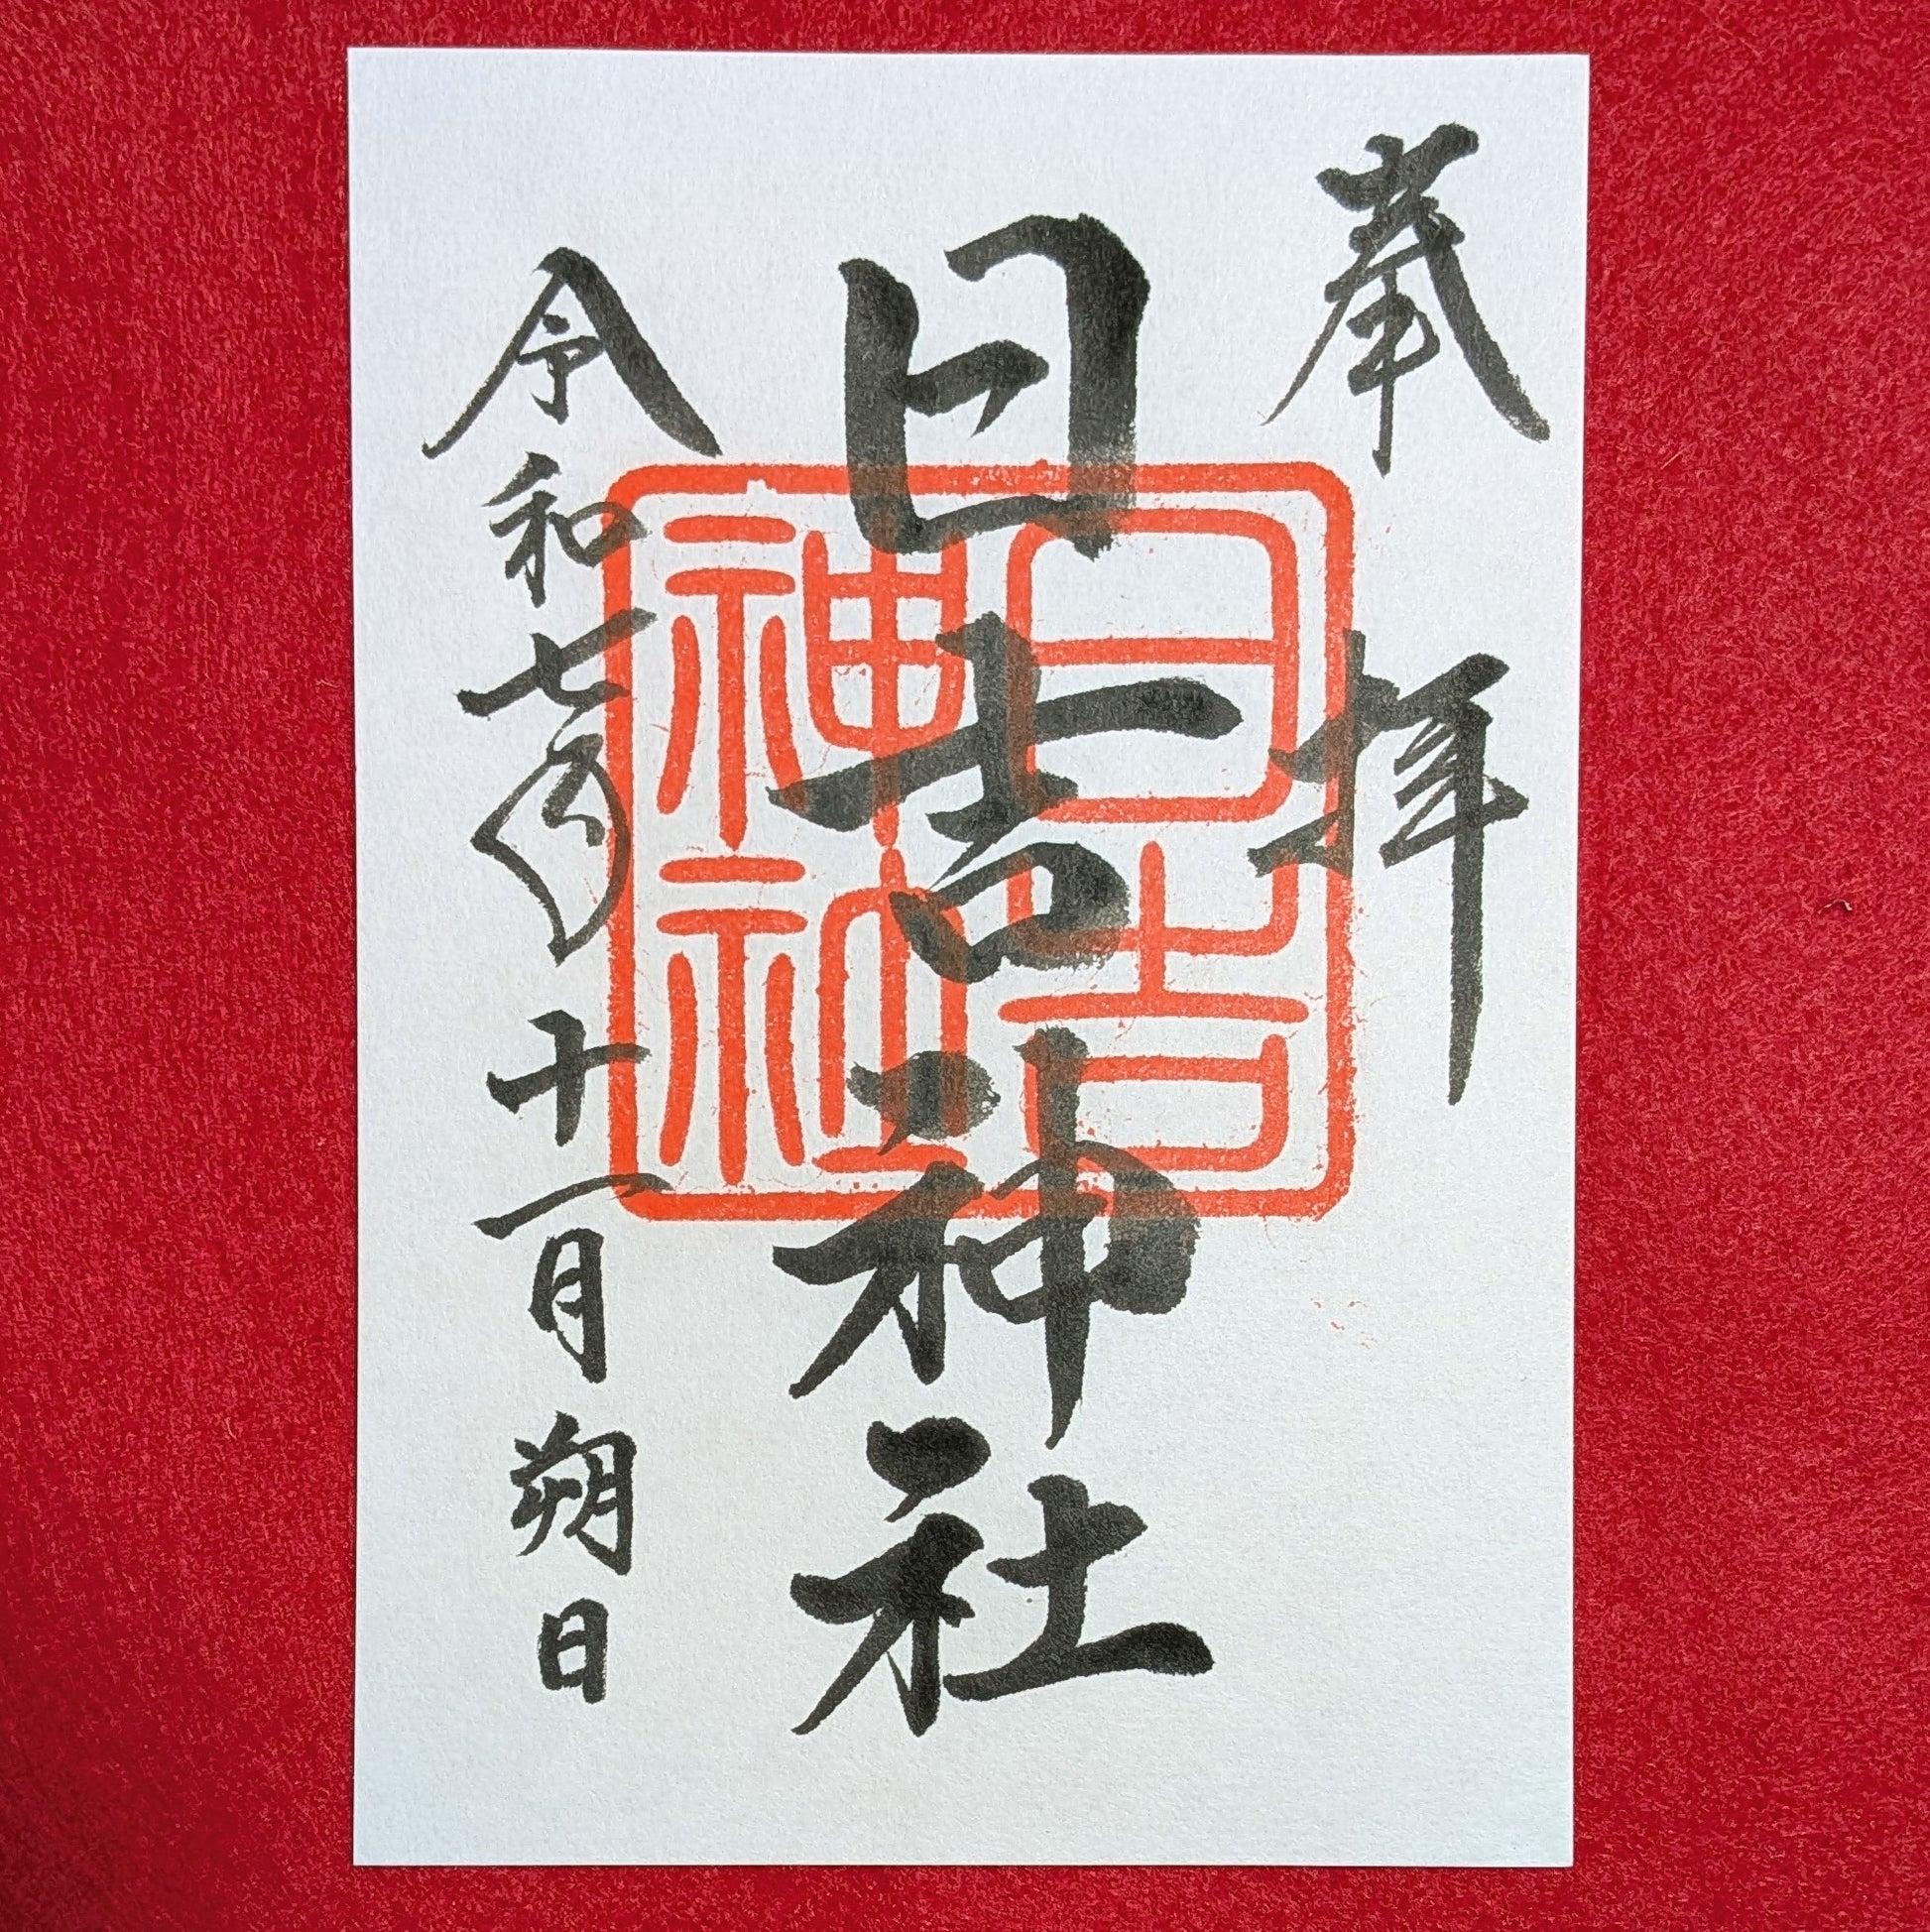 奉拝
日吉神社
令和七年十一月朔日
日吉
神社